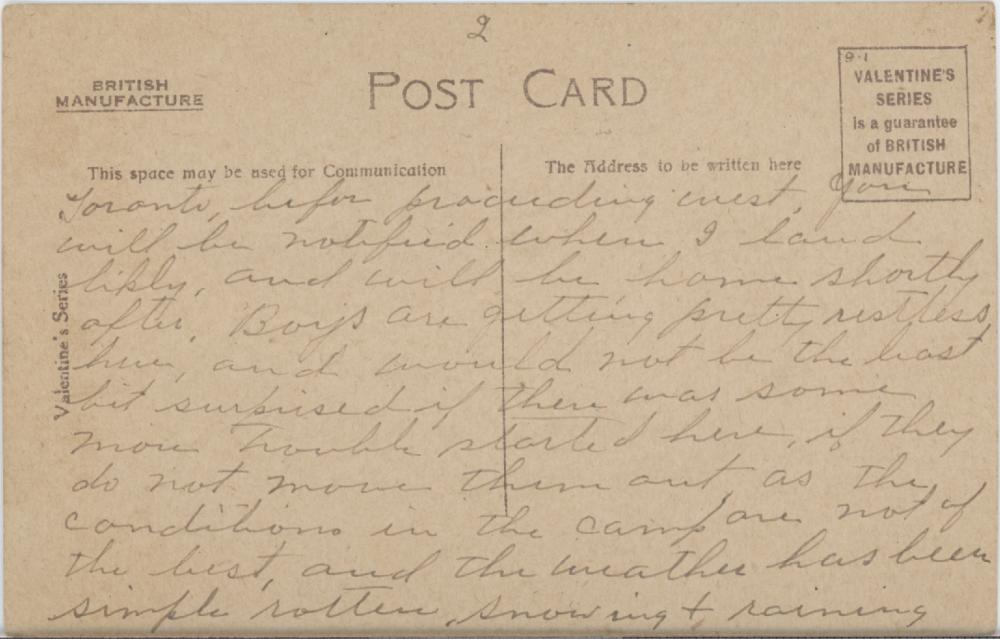 2
BRITISH
MANUFACTURE
POST CARD
9·1
VALENTINE'S
SERIES
is a guarantee
of BRITISH
MANUFACTURE
This space may be used for Communication
The Address to be written here
Valentine's Series
Toronto, before proceeding west, you
will be notified when I land
likly, and will be home shortly
after. Boys are getting pretty restless
here, and would not be the least
bit surprised if there was some
more trouble started here, if they
do not move them out as the
conditions in the camp are not of
the best, and the weather has been
simple rotten, snowing + raining